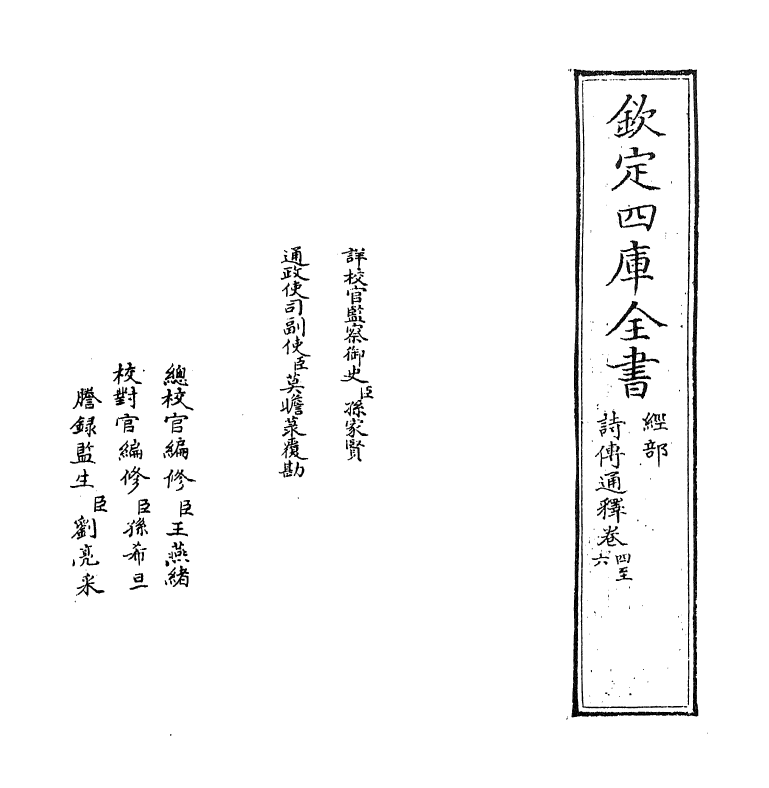 欽定四庫全書
經部
詩傳通釋卷四至六
詳校官監察御史臣孫家賢
通政使司副使臣莫瞻菉覆勘
總校官編修臣王燕緒
校對官編修臣孫希旦
謄錄監生臣劉亮采